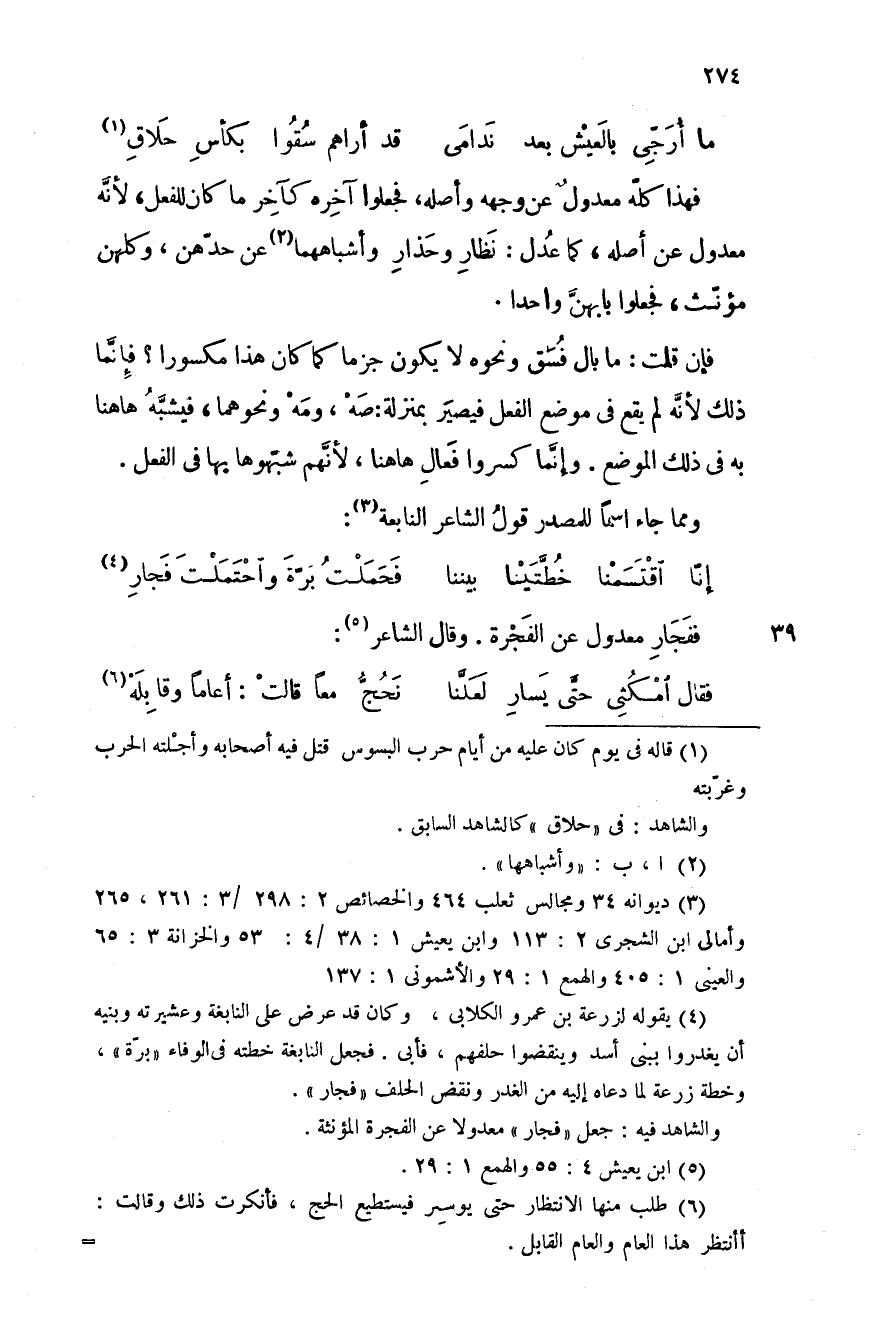 ٢٧٤
ما أُرَجِّى بالعَيْش بعد نَدامَى قد أراهم سُقُوا بكأسِ حَلاقِ(١)
فهذا كلّه معدولٌ عن وجهه وأصله، فجعلوا آخِره كآخِر ما كان للفعل، لأنَّه
معدول عن أصله ، كما عُدل : نَظارِ وحَذارِ وأشباههما(٢) عن حدّهن ، وكلهن
مؤنّث ، فجعلوا بابهنَّ واحدا .
فإن قلت : ما بال فُسَق ونحوه لا يكون جزما كما كان هذا مكسورا ؟ فإنَّما
ذلك لأنَّه لم يقع فى موضع الفعل فيصيَر بمنزلة : صَهْ ، ومَهْ ونحوهما ، فيشبَّهُ هاهنا
به فى ذلك الموضع . وإنَّما كسروا فَعالِ هاهنا ، لأنَّهم شبّهوها بها فى الفعل .
ومما جاء اسماً للمصدر قولُ الشاعر النابعة(٣) :
إنّا ٱقْتَسَمْنا خُطَّتَيْنا بيننا فَحَمَلْتُ بَرّةَ وٱحْتَمَلْتَ فَجارِ(٤)
ففَجَارِ معدول عن الفَجْرة . وقال الشاعر(٥) :
٣٩
فقال ٱمْكُثِى حتَّى يَسارِ لَعَلَّنا نَحُجُّ معاً قالتْ : أعاماً وقابِلَهْ(٦)
(١) قاله فى يوم كان عليه من أيام حرب البسوس قتل فيه أصحابه وأجلته الحرب
وغرّبته
والشاهد : فى «حلاق» كالشاهد السابق .
(٢) ا ، ب : «وأشباهها» .
(٣) ديوانه ٣٤ ومجالس ثعلب ٤٦٤ والخصائص ٢ : ٢٩٨ /٣ : ٢٦١ ، ٢٦٥
وأمالى ابن الشجرى ٢ : ١١٣ وابن يعيش ١ : ٣٨ /٤ : ٥٣ والخزانة ٣ : ٦٥
والعينى ١ : ٤٠٥ والهمع ١ : ٢٩ والأشمونى ١ : ١٣٧
(٤) يقوله لزرعة بن عمرو الكلابى ، وكان قد عرض على النابغة وعشيرته وبنيه
أن يغدروا ببنى أسد وينقضوا حلفهم ، فأبى . فجعل النابغة خطته فى الوفاء «برّة» ،
وخطة زرعة لما دعاه إليه من الغدر ونقض الحلف «فجار» .
والشاهد فيه : جعل «فجار» معدولا عن الفجرة المؤنثة .
(٥) ابن يعيش ٤ : ٥٥ والهمع ١ : ٢٩ .
(٦) طلب منها الانتظار حتى يوسِر فيستطيع الحج ، فأنكرت ذلك وقالت :
أأنتظر هذا العام والعام القابل .
=